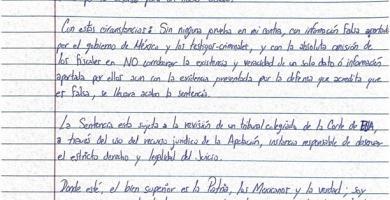 Con estas circunstancias: Sin ninguna prueba en mi contra, con información falsa aportada
por el gobierno de México y los testigos-criminales, y con la absoluta omisión de
los fiscales en NO corroborar la existencia y veracidad de un solo dato ó información
aportada por ellos aun con la evidencia presentada por la defensa que acredita que
es falsa, se llevará acabo la sentencia.
La Sentencia esta sujeta a la revisión de un tribunal colegiado de la Corte de EUA,
a través del uso del recurso jurídico de la Apelación, instancia responsable de observar
el estricto derecho y legalidad del Juicio.
Donde esté, el bien superior es la Patria, los Mexicanos y la verdad; soy